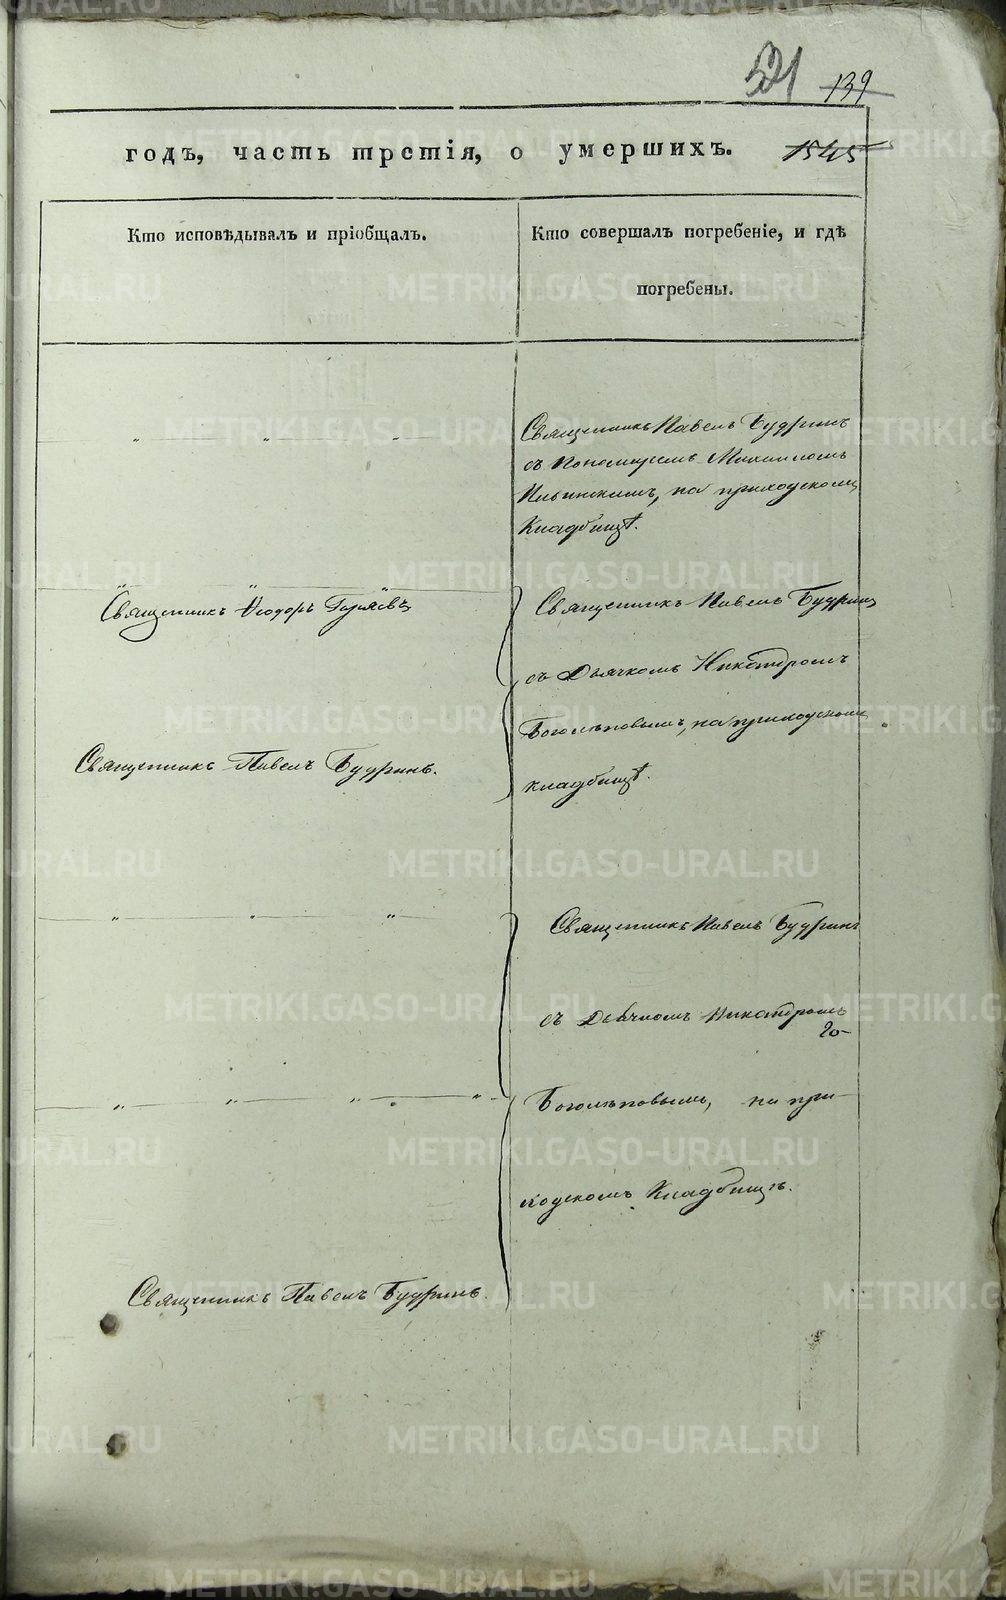 521 139
годъ, часть третія, о умершихъ. 1545
Кто исповѣдывалъ и пріобщалъ.
Кто совершалъ погребеніе, и гдѣ
погребены.
Священникъ Павелъ Будринъ
съ Пономаремъ Михаиломъ
Ильинскимъ, на приходскомъ
Кладбищѣ.
Священникъ Ѳеодоръ
Священникъ Павелъ Будринъ
съ Дьячкомъ Никандромъ
Боголѣповымъ, на приходскомъ
кладбищѣ.
Священникъ Павелъ Будринъ.
Священникъ Павелъ Будринъ
съ Дьячкомъ Никандромъ
Боголѣповымъ, на при-
ходскомъ Кладбищѣ.
Священникъ Павелъ Будринъ.
METRIKI.GASO-URAL.RU